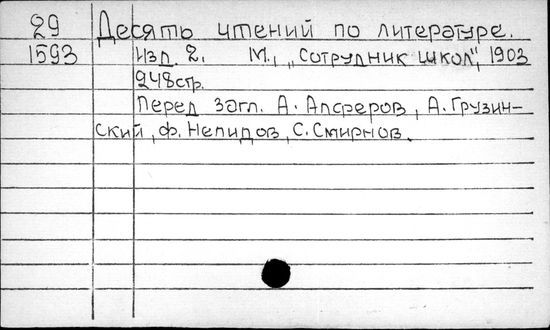 29 Десять чтений по литературе.
1593 Изд. 2. М., „Сотрудник школ“, 1903
248стр.
Перед загл. А. Алферов, А. Грузин-
ский, Ф. Нелидов, С. Смирнов.